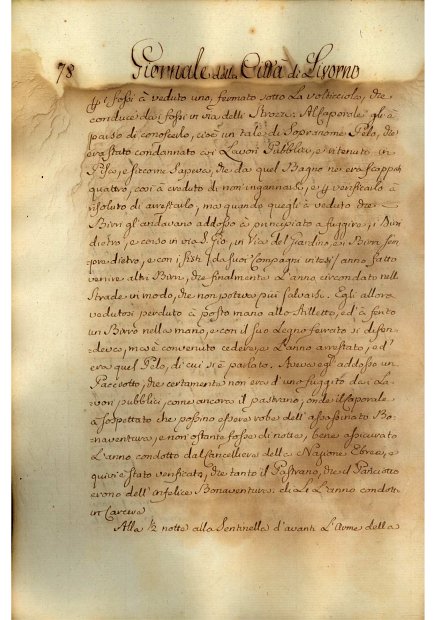 78 Giornale della Città di Livorno
i fossi à veduto uno, fermato sotto La volticciola, che
conduce dai fossi in via delli Strozzi. Al Caporale gli è
parso di conoscerlo, cioè un tale di Sopranome Pelo, che
era stato condannato ai Lavori Pubblici, e ritenuto in
Pisa, e siccome sapeva, che da quel Bagno ne era scappati
quattro, così à creduto di non ingannarsi, e p verificarlo à
risoluto di arrestarlo, ma quando quegli à veduto che i
Birri gl'andavano addosso à principiato a fuggire, i Birri
dietro, e corso in via S. Gio, in Via del Giardino, e i Birri sem
pre dietro, e con i fisti (da suoi Compagni intesi) anno fatto
venire altri Birri, che finalmente L'anno circondato nelle
Strade in modo, che non poteva più salvarsi. Egli allora
vedutosi perduto à posto mano allo stiletto, ed à ferito
un Birro nella mano, e con il suo Legno ferrato si difen-
deva, ma è convenuto cedere, e L'anno arrestato, ed
era quel Pelo, di cui si è parlato. Aveva egli addosso un
Panciotto, che certamente non era d'uno fuggito dai La
vori pubblici, come ancora il pastrano, onde il Caporale
à sospettato che possino essere robe dell'assassinato Bo-
naventura, e non ostante fosse di notte, bene assicurato
L'anno condotto dal Cancelliere della Nazione Ebrea, e
quivi è stato verificato, che tanto il Pastrano, che il Panciotto
erono dell'infelice Bonaventura: di Lì L'anno condotto
in Carcere
Alla ½ notte alla Sentinella d'avanti L'Arme della